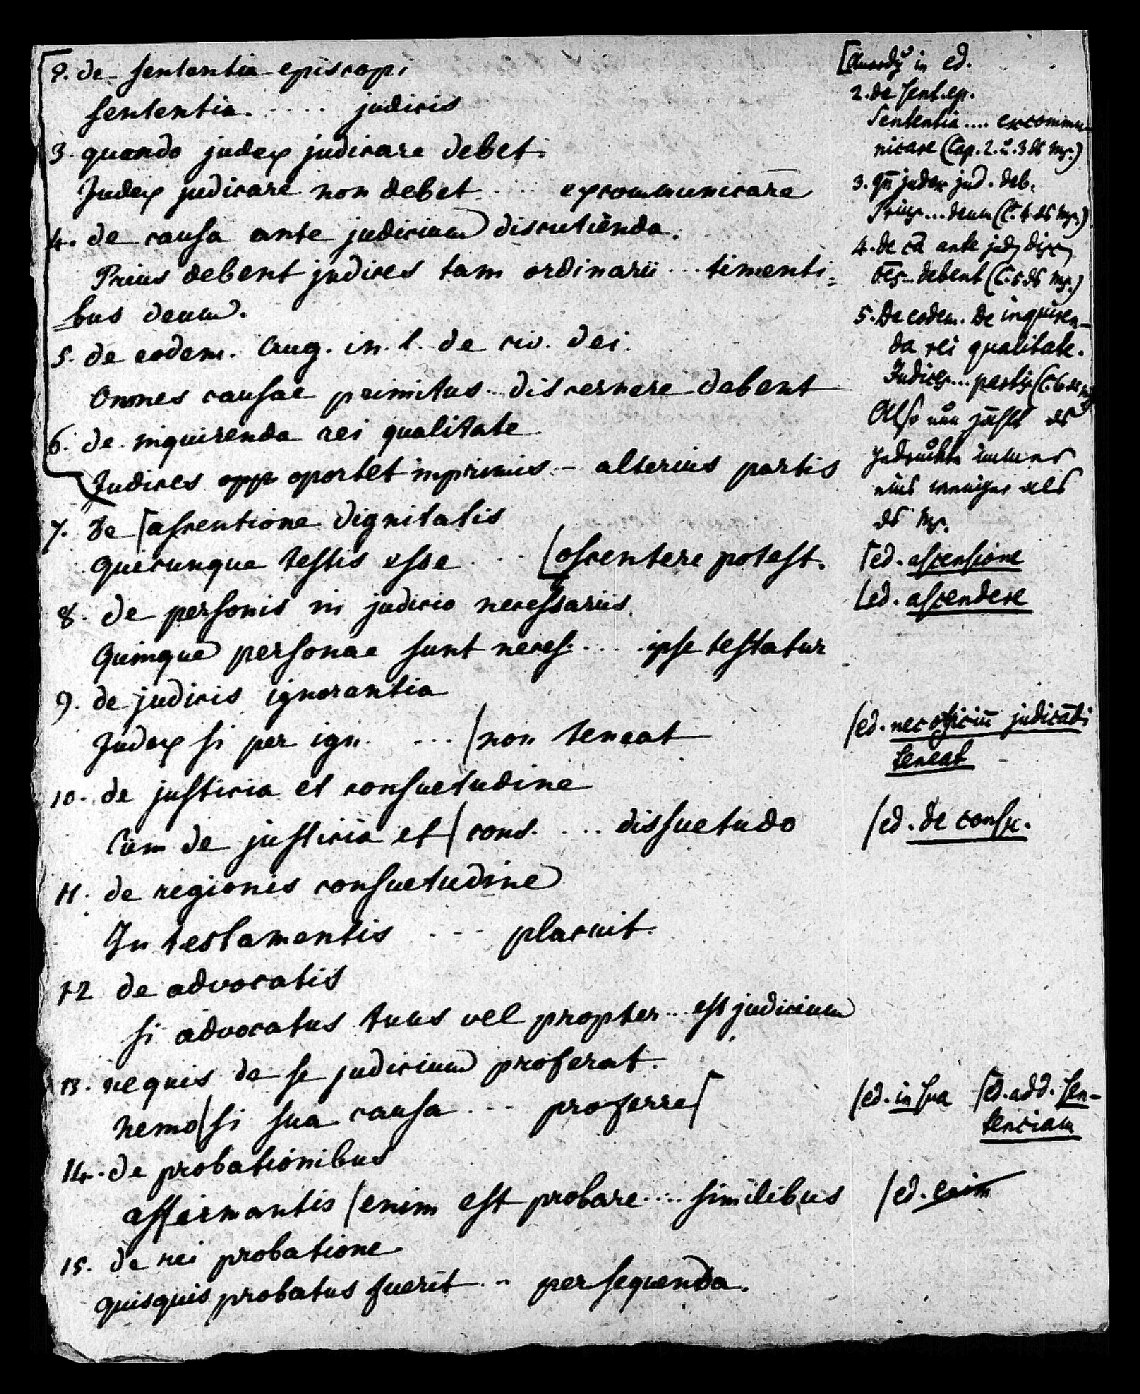 2. de sententia episcopi
sententia. .... judicis
3. quando judex judicare debet.
Judex judicare non debet .... excommunicare
4. de causa ante judicium discutienda.
Prius debent judices tam ordinarii ... timenti-
bus deum.
5. de eodem. Aug. in. l. de civ. dei.
Omnes causae primitus .. discernere debent
6. de inquirenda rei qualitate
Judices oportet imprimis – alterius partis
7. de [ascentione dignitatis
quecunque testis esse ... [ascentere potest.
8. de personis in judicio necessariis
Quinque personae sunt neces. ... ipse testatur
9. de judicis ignorantia
Judex si per ign. ... /non teneat
10. de justicia et consuetudine
Cum de justicia et / cons. ... dissuetudo
11. de regionis consuetudine
In testamentis --- placuit.
12 de advocatis
si advocatus tuus vel propter .. est judicium
13. nequis de se judicium proferat.
nemo /si sua causa ... proferre [
14. de probationibus
affirmantis /enim est probare .... similibus
15. de rei probatione
quisquis probatus fuerit .. persequenda.
in ed.
2. de sent. ep.
Sententia .... excommu-
nicare (Cap. 2. u. 3 ds Ms.)
3. qn judex jud. deb.
Prius ... deum (C. 4 ds Ms.)
4. de ca ante jud disc
Oes – debent (C. 5 ds Ms.)
5. De eodem. De inquiren-
da rei qualitate.
Judices ... partis (C. 6 ds Ms
Also nun zählt ds
gedruckte immer
eins weniger als
ds Ms.
[ed. ascensione
[ed. ascendere
/ed. nec officiu judicadi
teneat
/ed. de consu.
/ed. in sua [ed. add. sen-
tenciam
/ed. enim